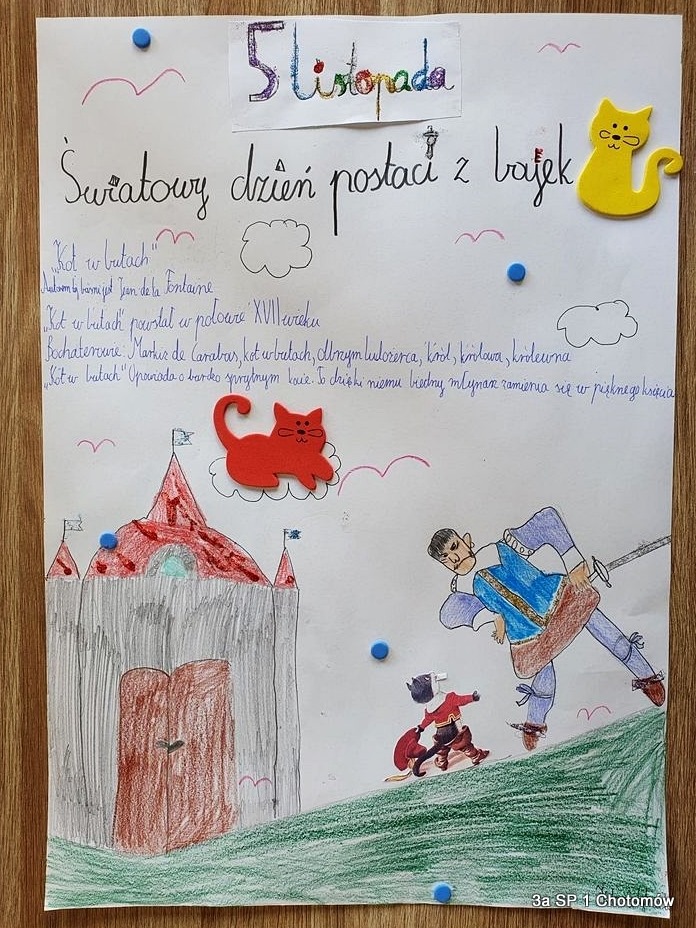 5 listopada
Światowy dzień postaci z bajek
"Kot w butach"
Autorem tej baśni jest Jean de la Fontaine
"Kot w butach" powstał w połowie XVII wieku
Bochaterowie: Markiz de Carabas, kot w butach, olbrzym ludożerca, król, królowa, królewna
"Kot w butach" Opowiada o bardzo sprytnym kocie. To dzięki niemu biedny młynarz zamienia się w pięknego księcia
3a SP 1 Chotomów